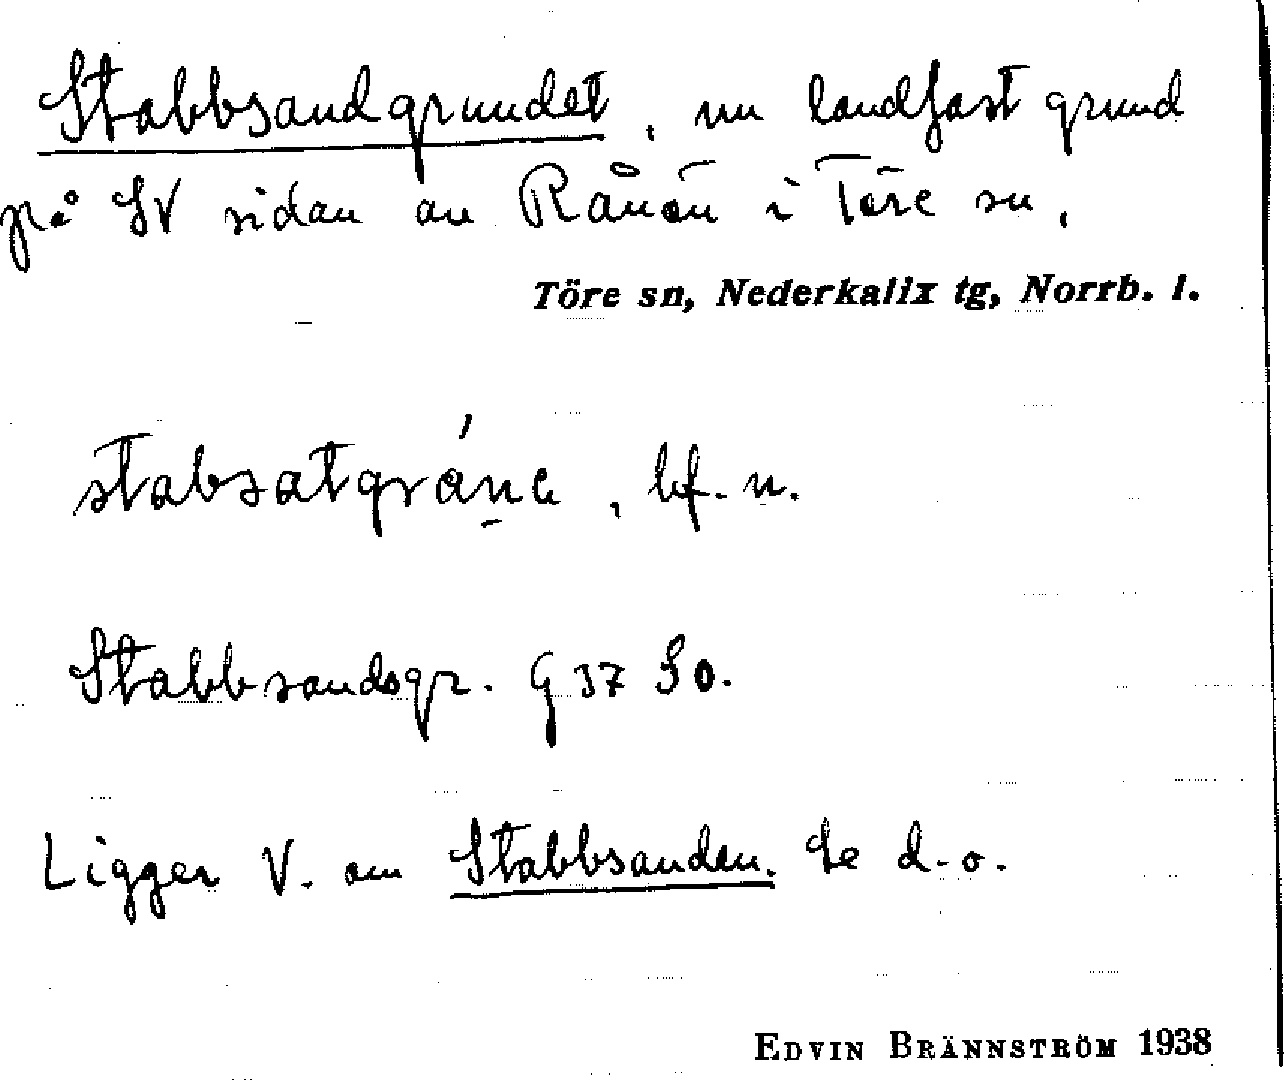 Stabbsandgrundet, nu landfast grund
på SV sidan av Rånön i Töre sn.
Töre sn, Nederkalix tg, Norrb. l.
stabsatgránɐ, bf. n.
Stabbsandsgr. G 37 So.
Ligger V. om Stabbsanden. Se d-o.
EDVIN BRÄNNSTRÖM 1938